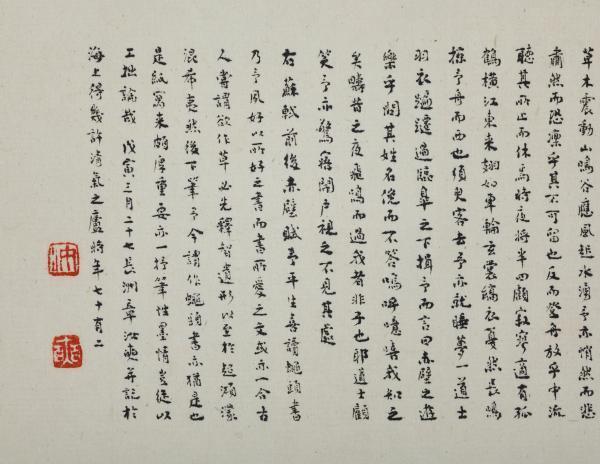 草木震動山鳴谷應風起水湧予亦悄然而悲
肅然而恐凜乎其不可留也反而登舟放乎中流
聽其所止而休焉時夜將半四顧寂寥適有孤
鶴橫江東來翅如車輪玄裳縞衣戛然長鳴
掠予舟而西也須臾客去予亦就睡夢一道士
羽衣蹁躚過臨臯之下揖予而言曰赤壁之遊
樂乎問其姓名俛而不答嗚呼噫嘻我知之
矣疇昔之夜飛鳴而過我者非子也耶道士顧
笑予亦驚寤開戶視之不見其處
右蘇軾前後赤壁賦予平生喜讀蠅頭書
乃予夙好以所好之書而書所愛之文或亦一合古
人嘗謂欲作草必先釋智遺形以至於超鴻濛
混希夷然後下筆予今謂作蠅頭書亦猶是也
是紙寫來頗厚重要亦一抒筆性墨情豈從以
工拙論哉戊寅三月二十七長洲章汝奭并記於
海上得幾許清氣之廬時年七十有二